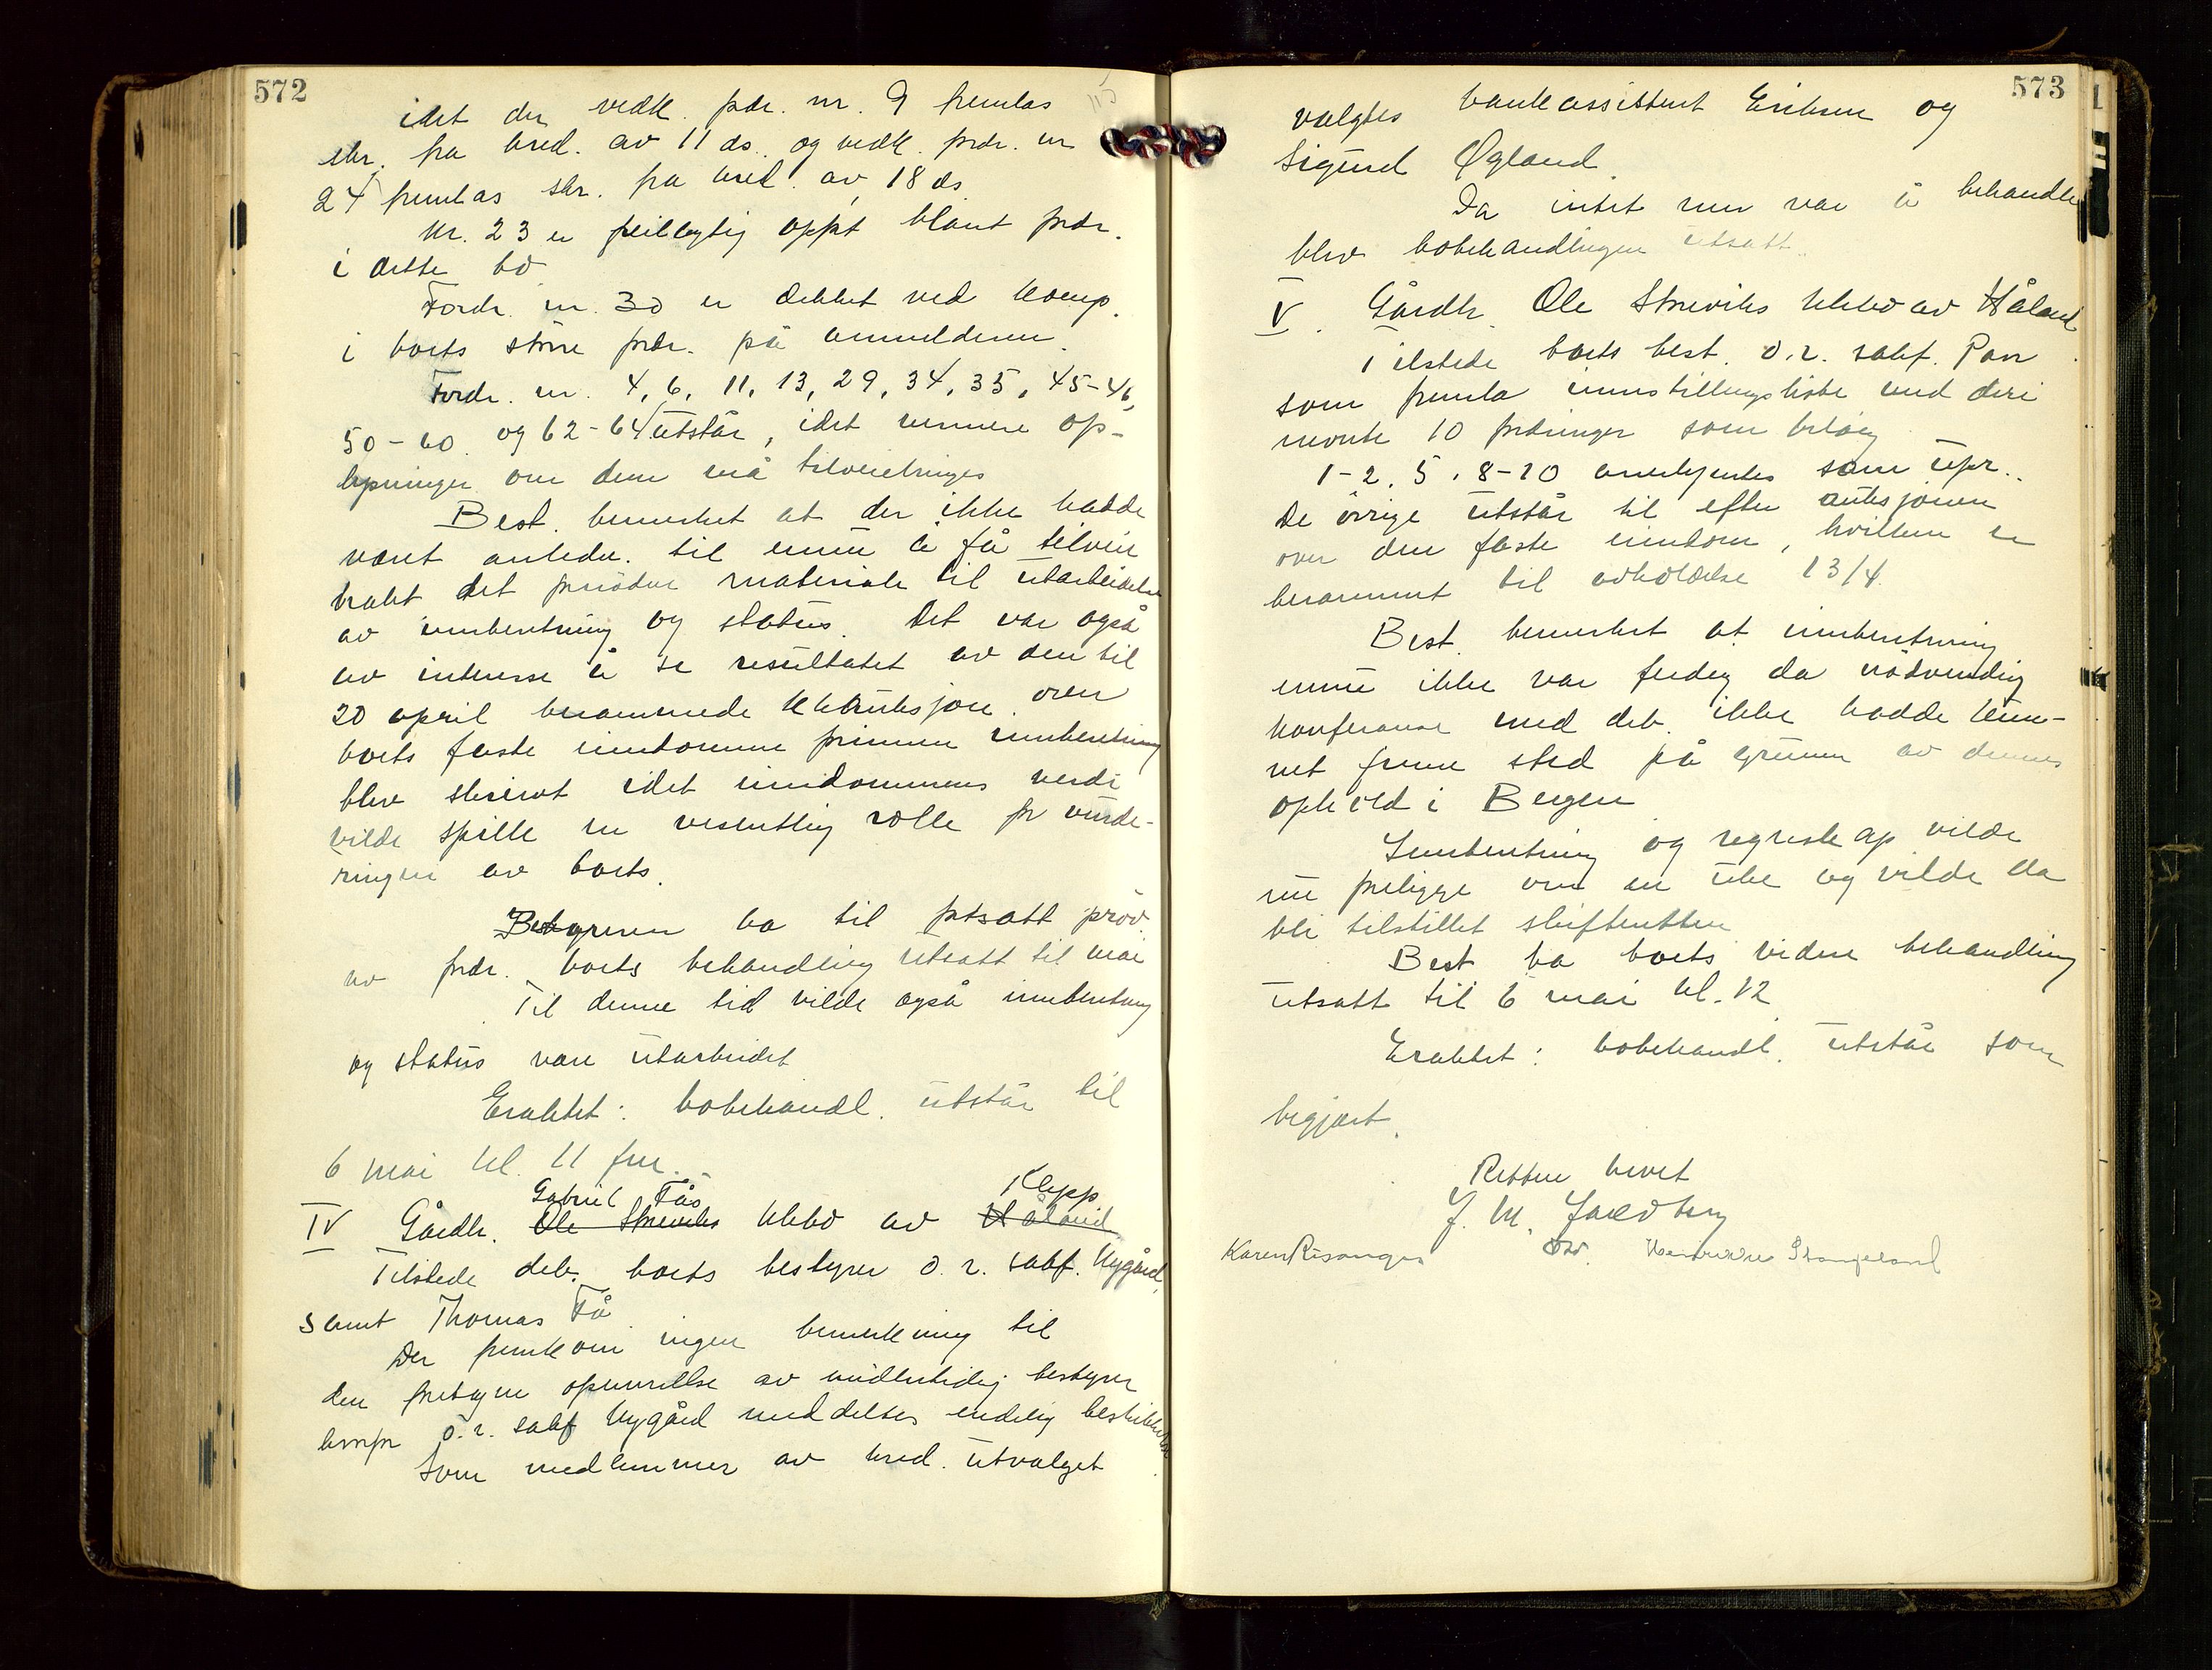 572
idet der vedk. fordr. nr. 9 fremlas
skr. fra kred. av 11 ds. og vedk. fordr. nr
24 fremlas skr. fra kred. av 18 ds
Nr. 23 er feilagtig oppf blant fordr.
i dette bo
Fordr. nr. 30 er dekket ved komp.
i boets større fordr. på anmelderen.
Fordr. nr. 4, 6, 11, 13, 29, 34, 35, 45-46,
50-60 og 62-64 utstår, idet nærmere op-
lysninger om dem må tilveiebringes
Best. bemerket at der ikke hadde
været anledn. til ennu å få tilveie
bragt det fornødne materiale til utarbeidelse
av innberetning og status. Det var også
av interesse å se resultatet av den til
20 april berammede kkauksjon over
boets faste eiendomme forinnen innberetning
blev skrevet idet eiendommens verdi
vilde spille en vesentlig rolle for vurde-
ringen av boets.
Bestyreren ba til fortsatt prøv.
av fordr. boets behandling utsatt til mai
Til denne tid vilde også innberetning
og status være utarbeidet
Erakted: bobehandl. utstår til
6 mai kl. 11 fm.
Gabriel Fås Klepp
IV Gårdbr. Ole Skreviks kkbo av Håland
Tilstede deb. boets bestyrer o.r. sakf. Nygård,
samt Thomas Få
Der fremkom ingen bemerkning til
den foretagne opnevnelse av midlertidig bestyrer
hvorfor o.r. sakf Nygård meddeltes endelig beskikkelse
Som medlemmer av kred. utvalget
573
valgtes bankassistent Eriksen og
Sigurd Øgland.
Da intet mer var å behandle
blev bobehandlingen utsatt.
V. Gårdbr. Ole Skreviks kkbo av Håland
Tilstede boets best. o.r. sakf.
som fremla innstillingsliste med deri
nevnte 10 fordringer som bilag
1-2, 5, 8-10 anerkjentes som upr.
De øvrige utstår til efter auksjonen
over den faste eiendom, hvilken er
berammet til avholdelse 13/4.
Best. bemerket at innberetning
ennu ikke var ferdig da nødvendig
konferanse med deb. ikke hadde kun-
net finne sted på grunn av dennes
ophold i Bergen
Innberetning og regnskap vilde
nu foreligge om en uke og vilde da
bli tilstillet skifteretten
Best ba boets videre behandling
utsatt til 6 mai kl. 12
Eraktet: bobehandl. utstår som
begjært.
Retten hevet
Karen Risanger